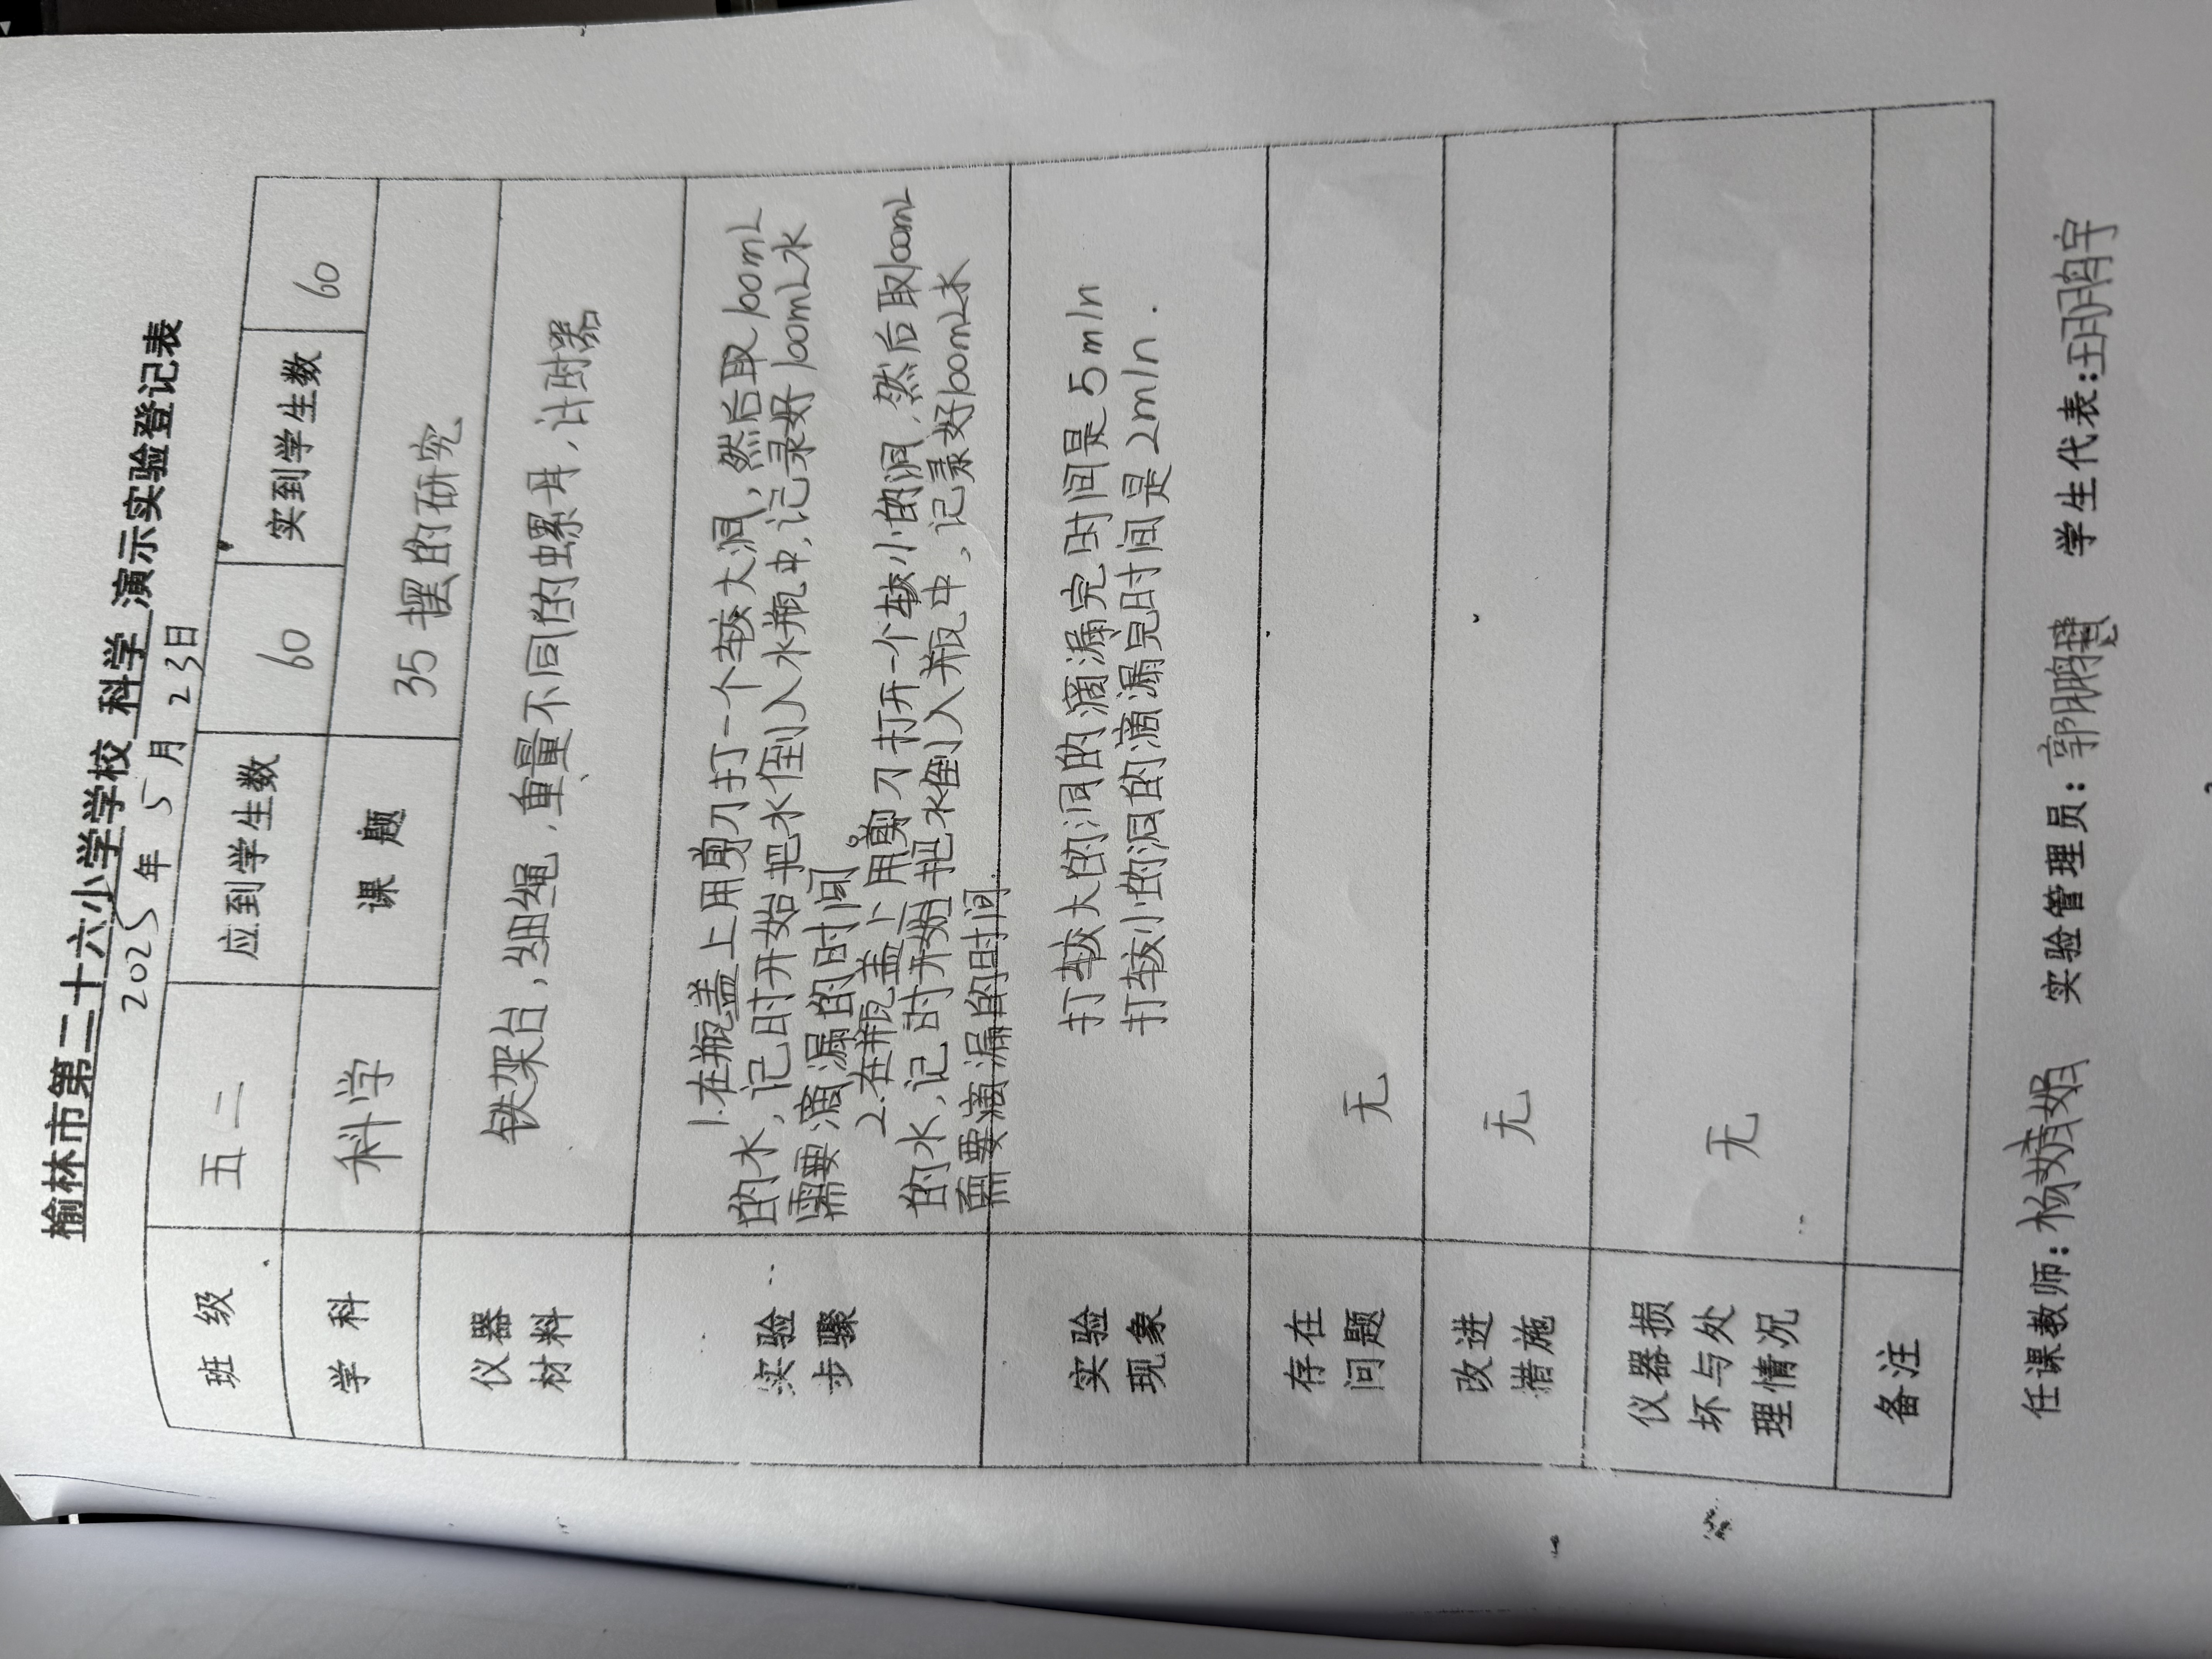 榆林市第二十六小学学校 科学 演示实验登记表
2025 年 5 月 23日
班 级 五二 应到学生数 60 实到学生数 60
学 科 科学 课 题 35 摆的研究
仪器 材料 铁架台,细绳,重量不同的螺母,计时器
实验 步骤
1.在瓶盖上用剪刀打一个较大洞,然后取100mL
的水,记时开始把水倒入水瓶中,记录好100mL水
需要滴漏的时间。
2.在瓶盖上用剪刀打开一个较小的洞,然后取100mL
的水,记时开始把水倒入瓶中,记录好100mL水
需要滴漏的时间.
实验 现象
打较大的洞的滴漏完时间是5min
打较小的洞的滴漏完时间是2min.
存在 问题 无
改进 措施 无
仪器损 坏与处 理情况 无
备注
任课教师:杨婧娟 实验管理员:郭鹏慧 学生代表:王羽宇